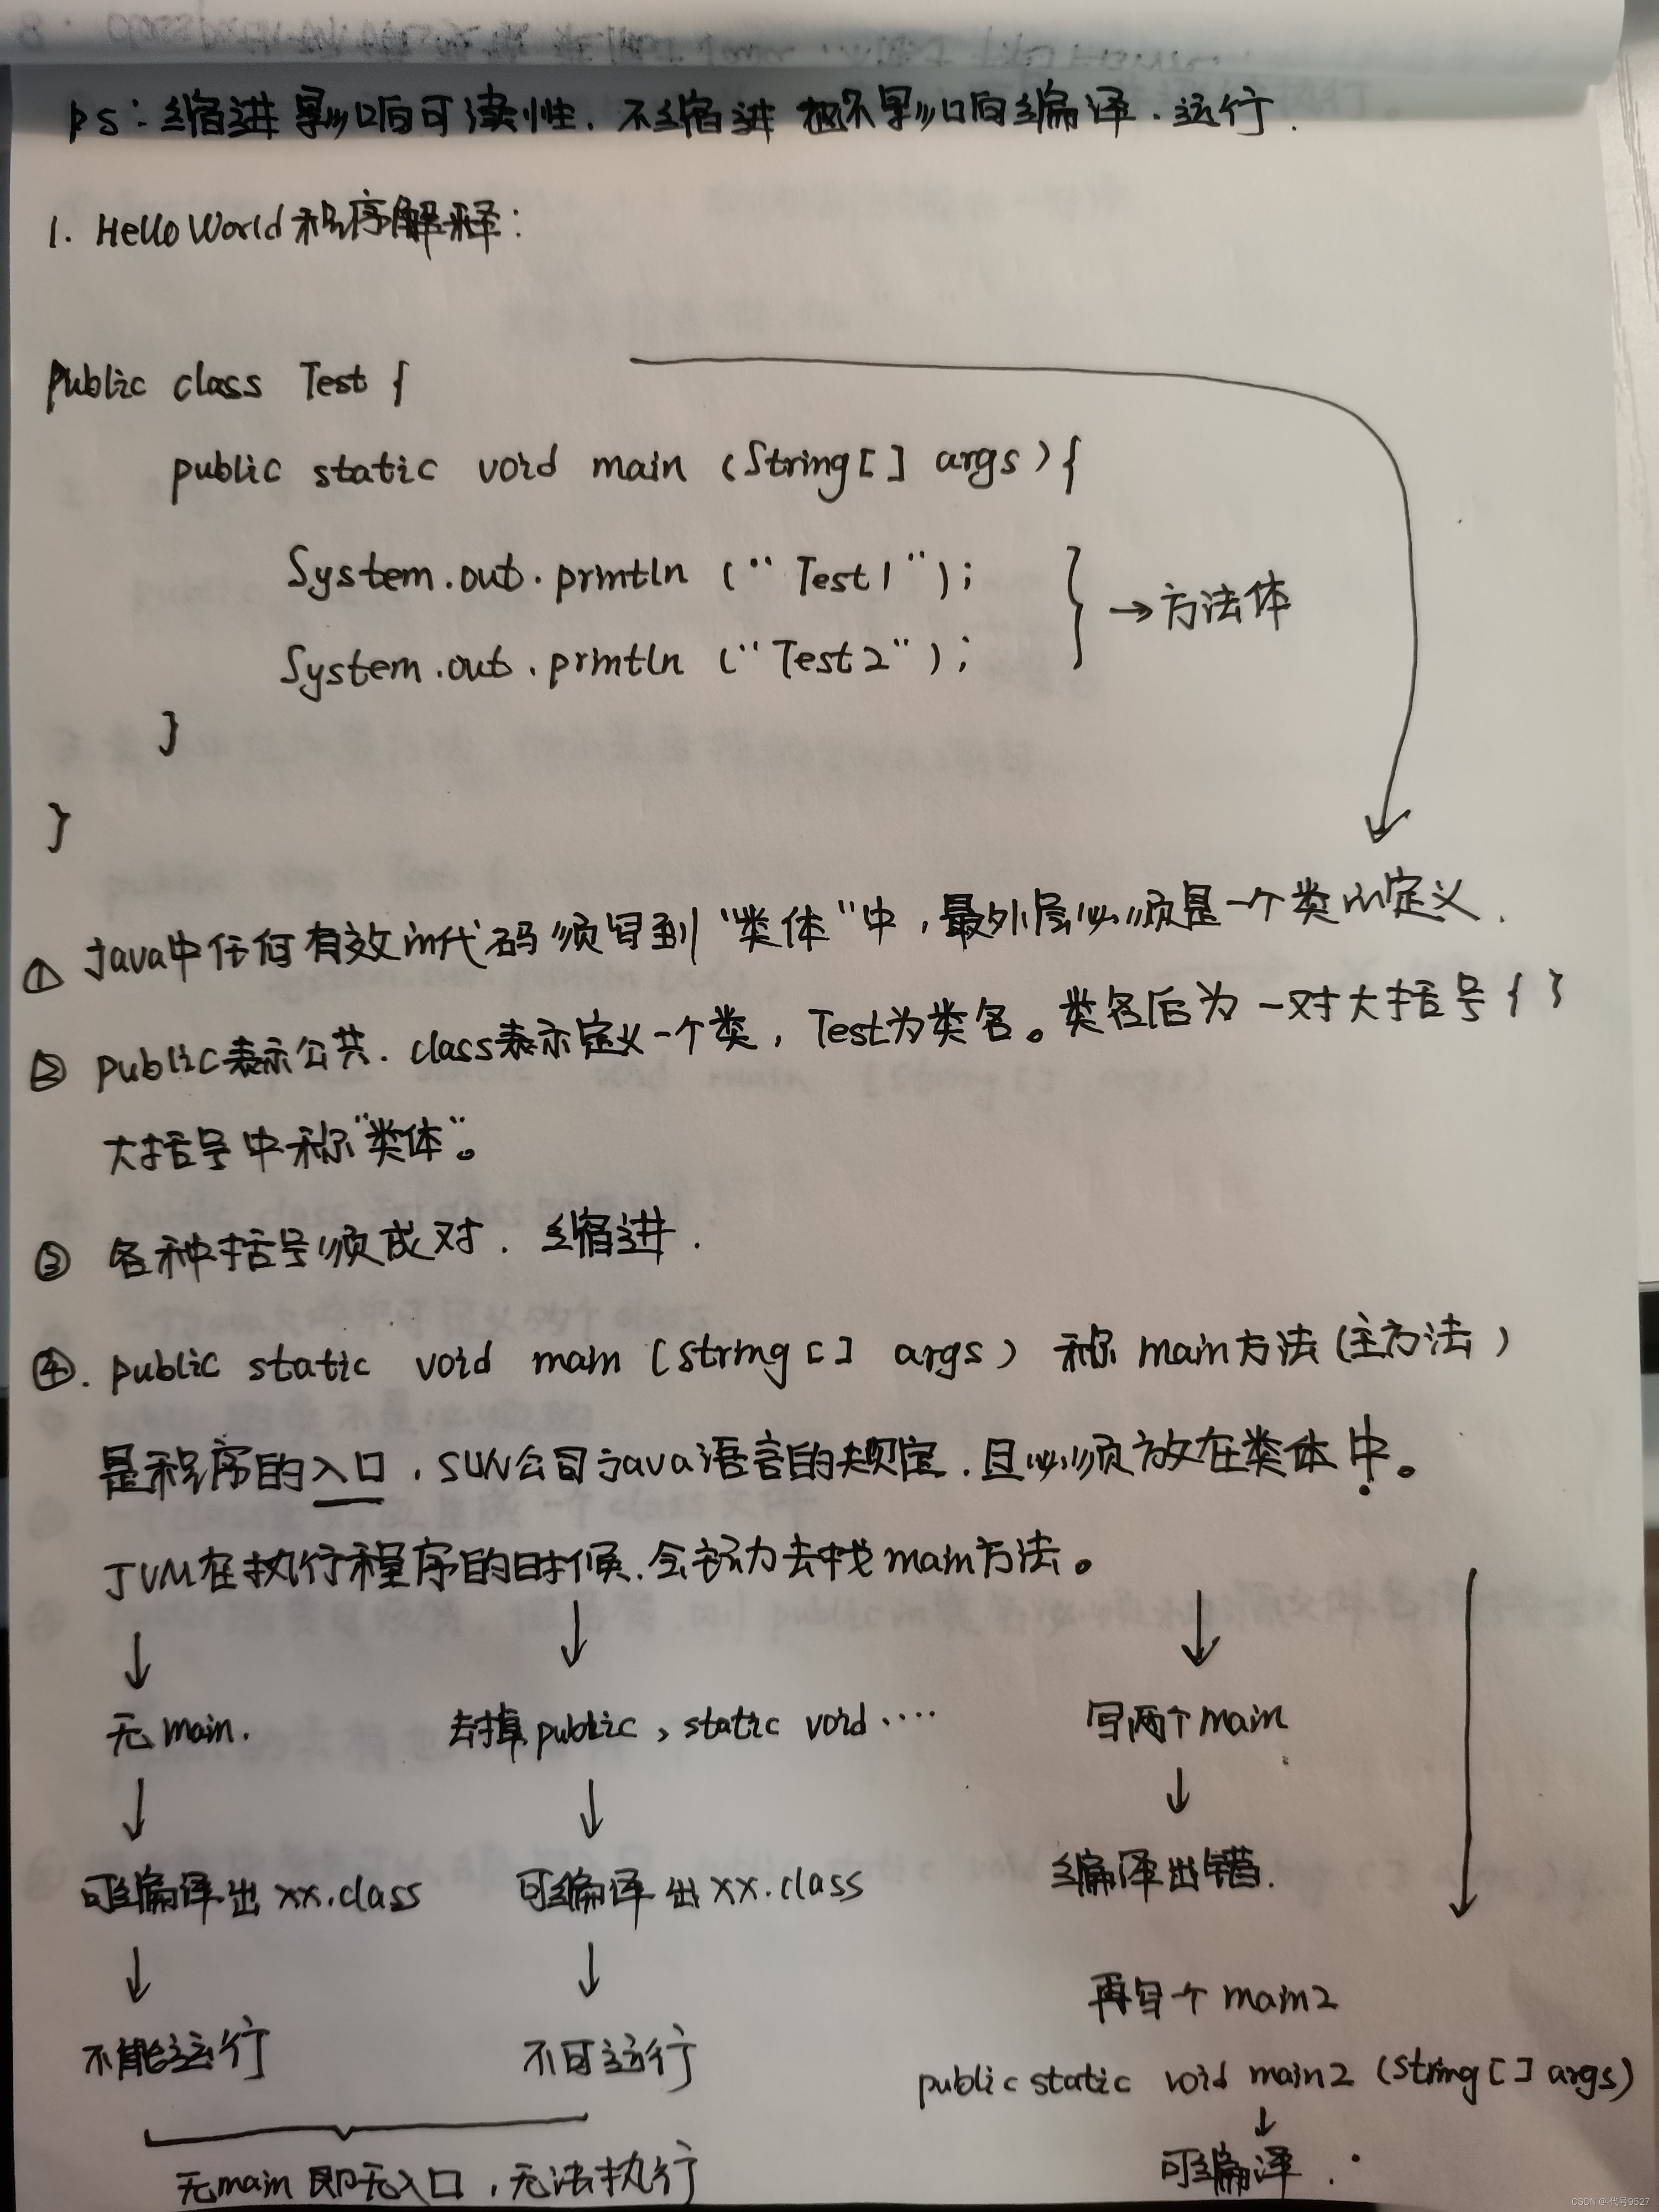 ps：缩进影响可读性．不缩进也不影响编译．运行．
1. HelloWorld程序解释：
public class Test {
public static void main (String[] args){
System.out.println ("Test1");
→方法体
System.out.println ("Test2");
}
}
① java中任何有效的代码须写到"类体"中，最外层必须是一个类的定义．
② public表示公共．class表示定义一个类，Test为类名。类名后为一对大括号{ }
大括号中称"类体"。
③ 各种括号须成对．缩进．
④. public static void main (String[] args) 称 main方法(主方法)
是程序的入口，SUN公司java语言的规定．且必须放在类体中。
JVM在执行程序的时候．会主动去找main方法。
↓ ↓ ↓
无main． 去掉public，static void .... 写两个main
↓ ↓ ↓
可编译出xx.class 可编译出xx.class 编译出错．
↓ ↓
再写个main2
不能运行 不可运行
public static void main2 (String[] args)
↓
无main即无入口，无法执行 可编译．
CSDN @代号9527